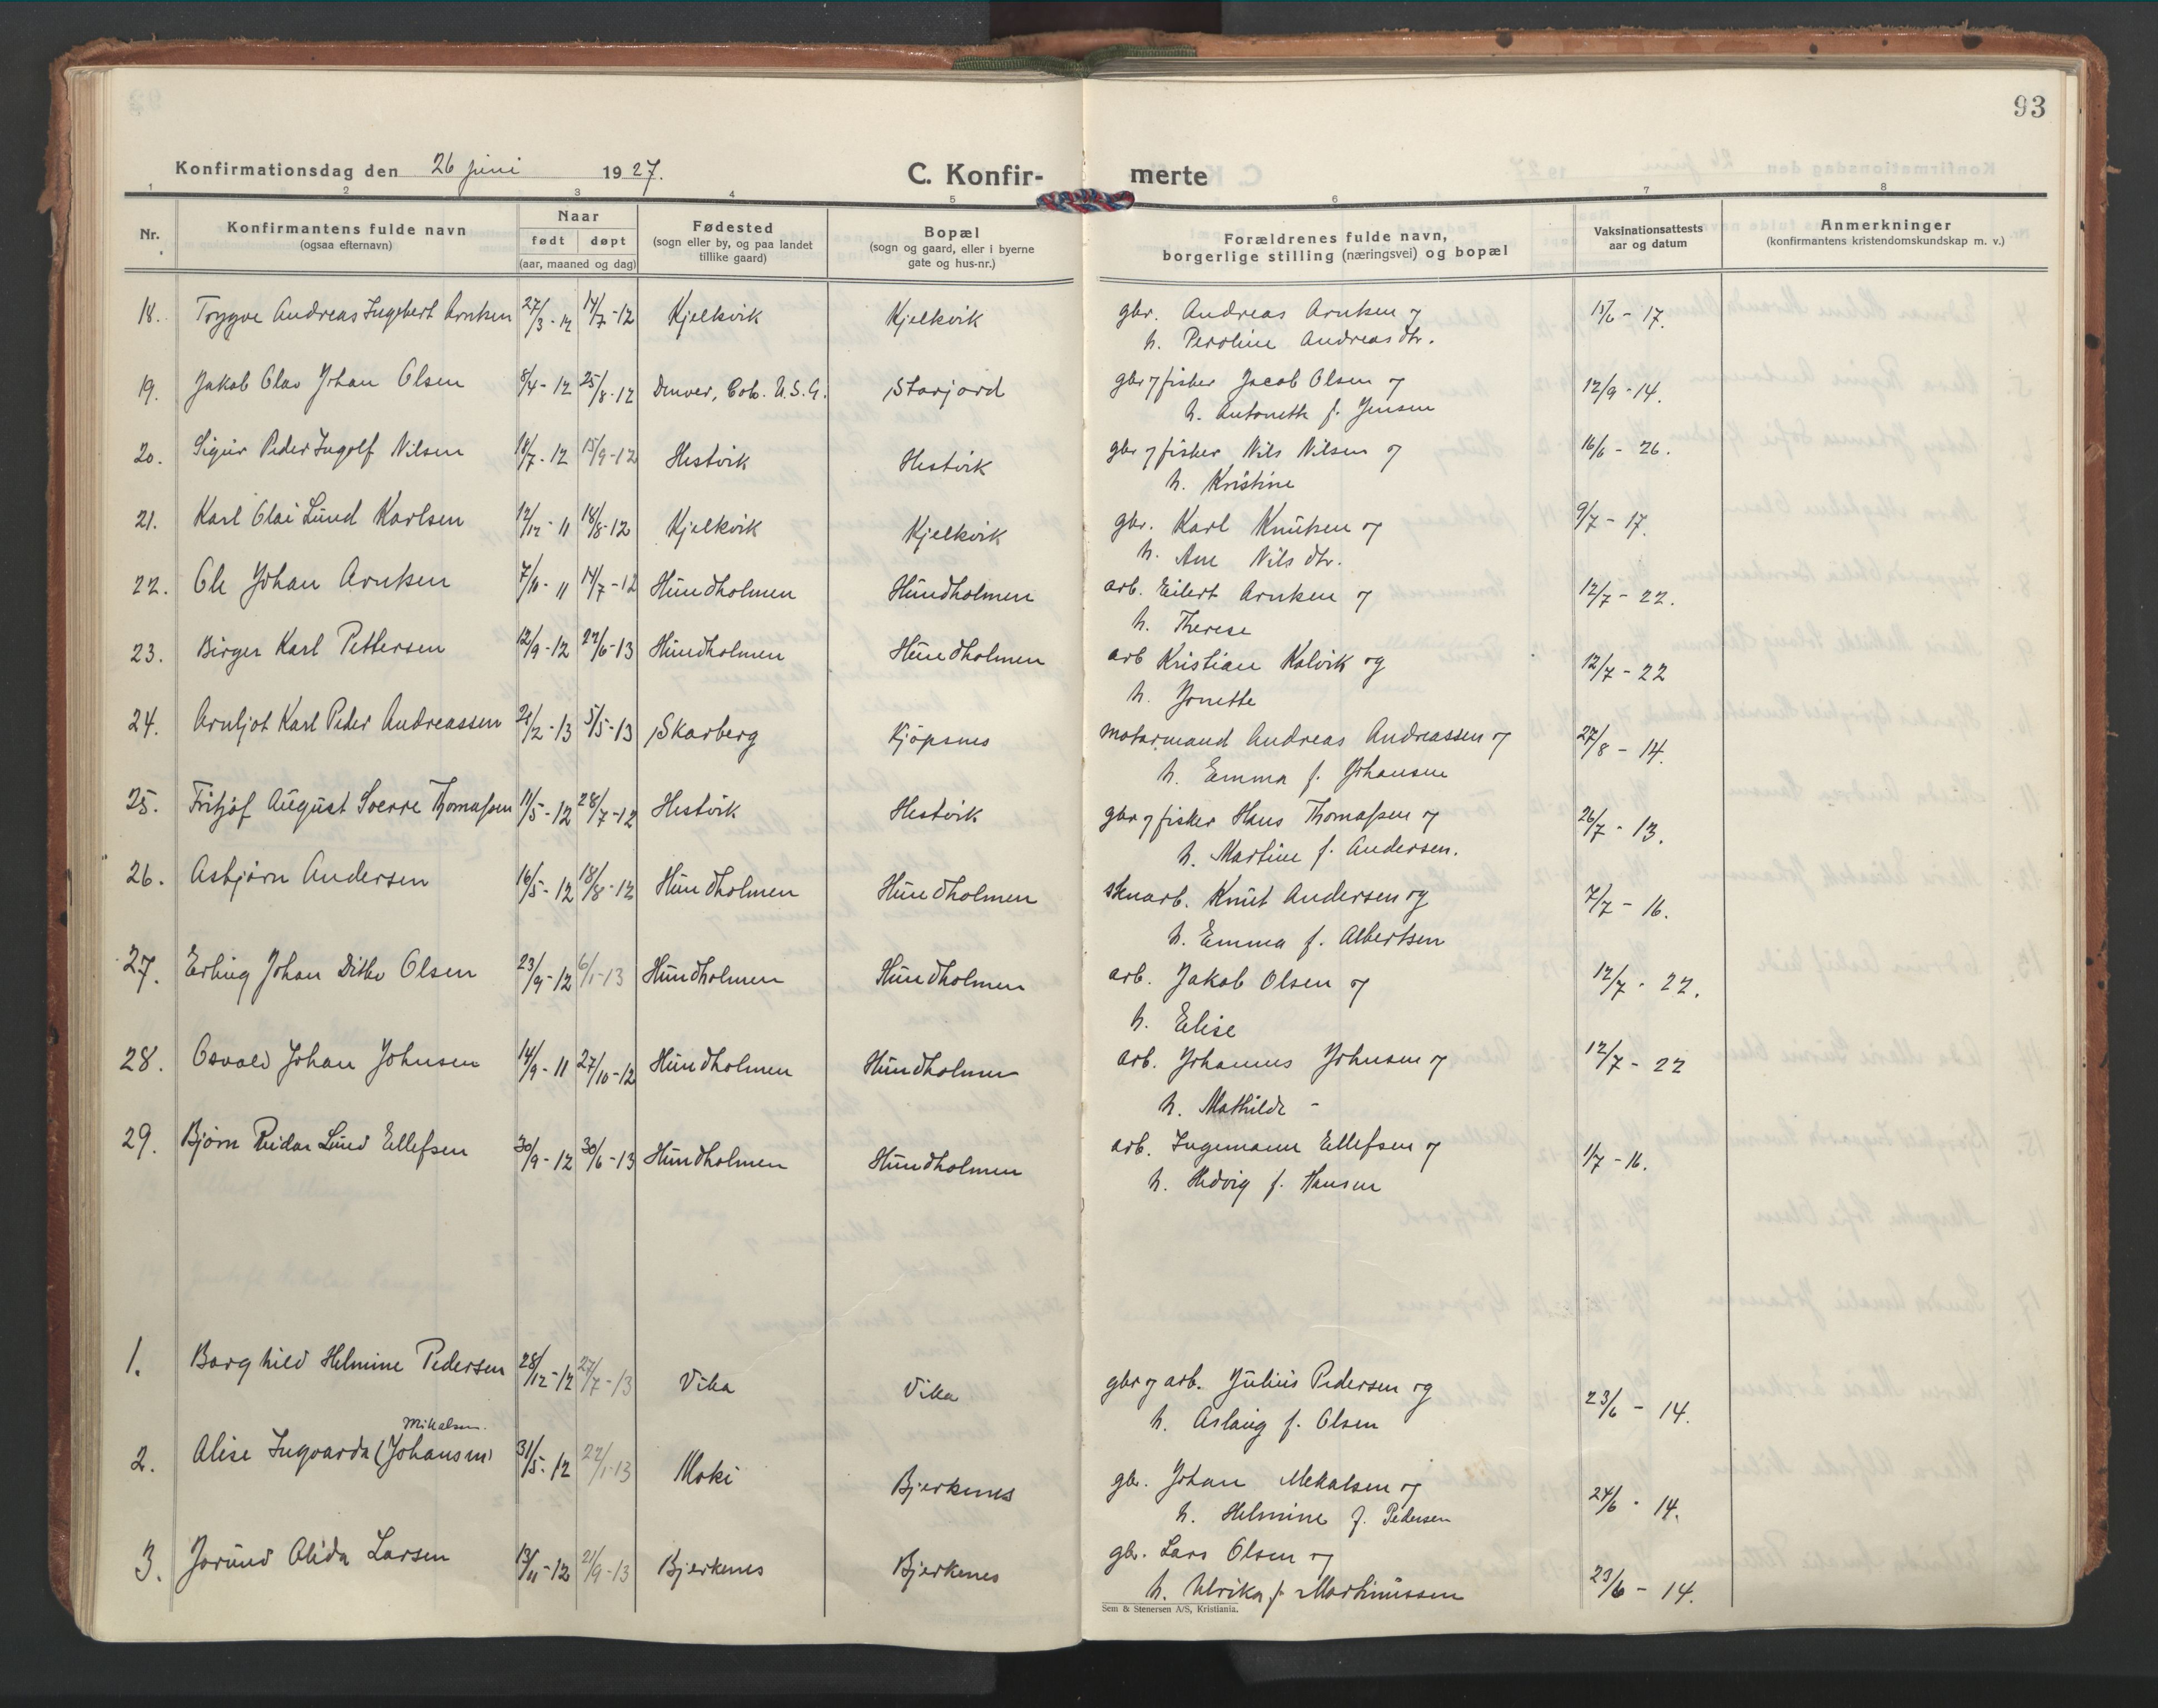 93
Konfirmationsdag den 26 juni 1927. C. Konfir- merte
1 2 3 4 5 6 7 8
Nr. Konfirmantens fulde navn (ogsaa efternavn) Naar født døpt (aar, maaned og dag) Fødested (sogn eller by, og paa landet tillike gaard) Bopæl (sogn og gaard, eller i byerne gate og hus-nr.) Forældrenes fulde navn, borgerlige stilling (næringsvei) og bopæl Vaksinationsattests aar og datum Anmerkninger (konfirmantens kristendomskundskap m. v.)
18. Trygve Andreas Ingebert Arntsen 27/3-12 14/7-12 Kjelkvik Kjelkvik gbr. Andreas Arntsen og 15/6-17.
h. Peroline Andreasdtr.
19. Jakob Olav Johan Olsen 8/4-12 25/8-12 Denver, Colo. U.S.A. Storjord gbr og fisker Jacob Olsen og 12/9-14.
h. Antonette f. Jensen
20. Sigur Peder Ingolf Nilsen 18/7-12 15/9-12 Hestvik Hestvik gbr og fisker Nils Nilsen og 16/6-26.
h. Kristine
21. Karl Olai Lund Karlsen 12/12-11 18/8-12 Kjelkvik Kjelkvik gbr. Karl Knutsen og 9/7-17.
h. Ane Nilsdtr.
22. Ole Johan Arntsen 7/10-11 14/7-12 Hundholmen Hundholmen arb. Eilert Arntsen og 12/7-22.
h. Therese
23. Birger Karl Pettersen 12/9-12 22/6-13 Hundholmen Hundholmen arb Kristian Kalvik og 12/7-22
h. Jonette
24. Arnljot Karl Peder Andreassen 21/2-13 5/5-13 Skarberg Kjöpsnes motormand Andreas Andreassen og 27/8-14.
h. Emma f. Johansen
25. Fritjof August Sverre Thomassen 11/5-12 28/7-12 Hestvik Hestvik gbr og fisker Hans Thomassen og 26/7-13.
h. Martine f. Andersen.
26. Asbjørn Andersen 16/5-12 18/8-12 Hundholmen Hundholmen stenarb. Knut Andersen og 7/7-16.
h. Emma f. Albertsen
27. Erling Johan Ditlev Olsen 23/9-12 6/1-13 Hundholmen Hundholmen arb. Jakob Olsen og 12/7-22.
h. Elise
28. Osvald Johan Johnsen 14/9-11 27/10-12 Hundholmen Hundholmen arb. Johannes Johnsen og 12/7-22
h. Mathilde -
29. Bjørn Reidar Lund Ellefsen 30/9-12 30/6-13 Hundholmen Hundholmen arb. Ingemann Ellefsen og 1/7-16.
h. Hedvig f. Hansen
1. Borghild Helmine Pedersen 28/12-12 27/7-13 Vika Vika gbr og arb. Julius Pedersen og 23/6-14.
h. Aslaug f. Olsen
Mikalsen.
2. Alise Ingvarda (Johansen) 31/5-12 22/1-13 Moki Bjerkenes gbr. Johan Mekalsen og 24/6-14.
h. Helmine f. Pedersen
3. Jorund Alida Larsen 13/11-12 21/9-13 Bjerkenes Bjerkenes gbr. Lars Olsen og 23/6-14.
h. Ulrika f. Martinussen
Sem & Stenersen A/S, Kristiania.